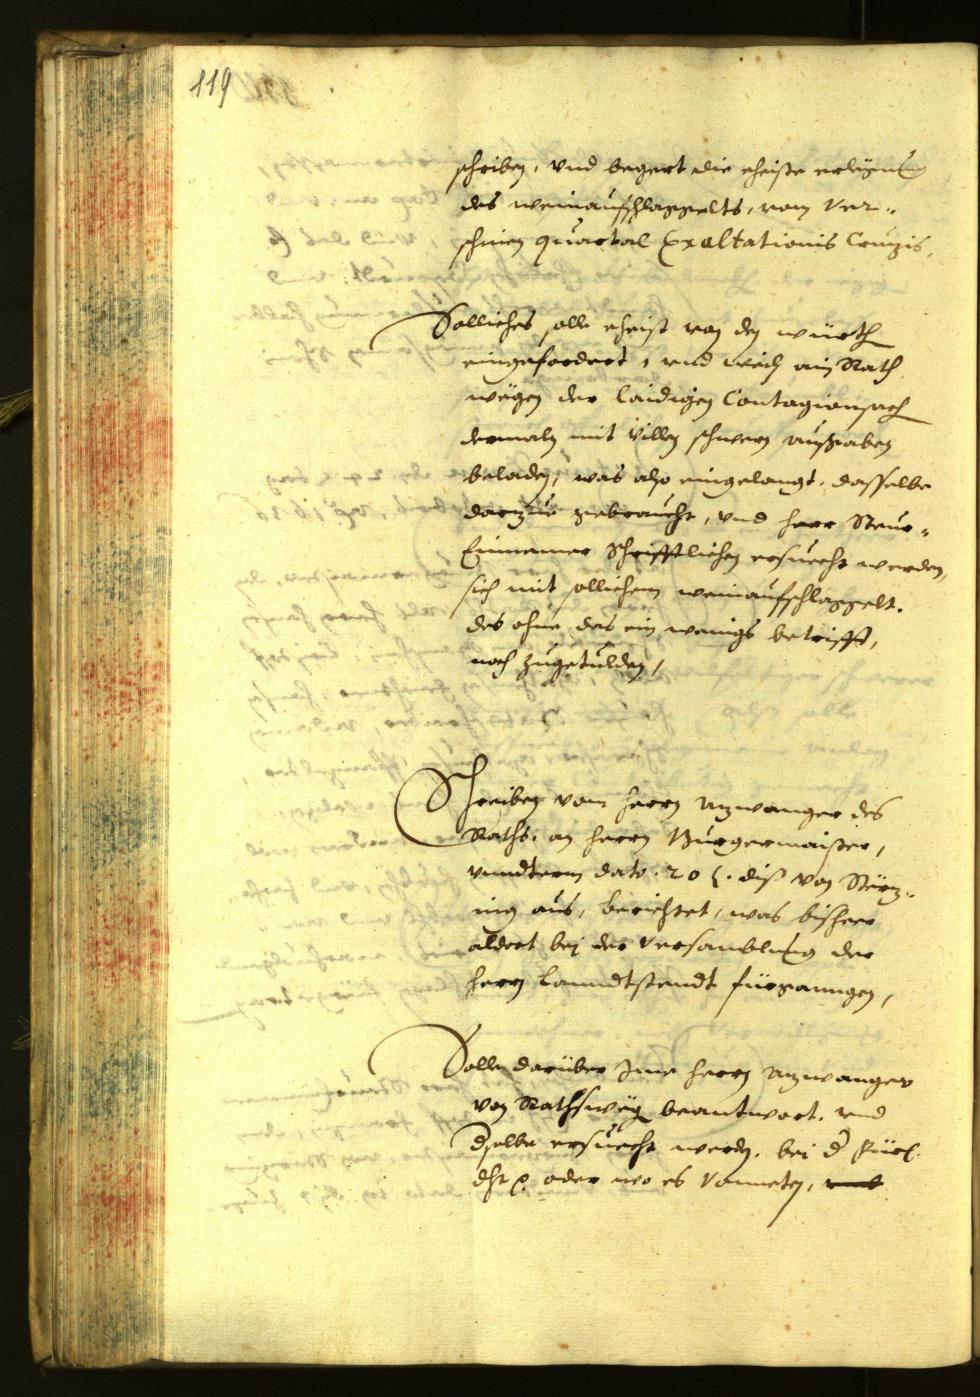 119
schriben, vnd begert die eheiste erlegung
des weinaufschlaggelts, vom ver-
schinen quartal Exaltationis Crucis,
Solliches solle eheist von den würth
eingefordert, vnd weil ain Rath
wegen der laidigen Contagionsach
dermaln mit villen schwern außgaben
beladen, was also eingelangt, dasselbe
darzue gebraucht, vnd herr Steur-
Einnemer Schrifftlichen ersuecht werden,
sich mit sollichem weinaufschlaggelt.
des ohne das ein wenigs betrifft,
noch zugetulden,
Schreiben vom herrn Unzwanger des
Raths. an herrn Burgermaister,
vnnderm dato .20. diß von Störz-
ing aus, berichtet, was bisheer
aldort bej der versamblung der
herrn Lanndtstendt fürganngen,
Solle darüber Jme herrn Unzwanger
von Rathsweg beantwort. vnd
dselbe ersuecht werdn. bei d
oder wo es vonneten,